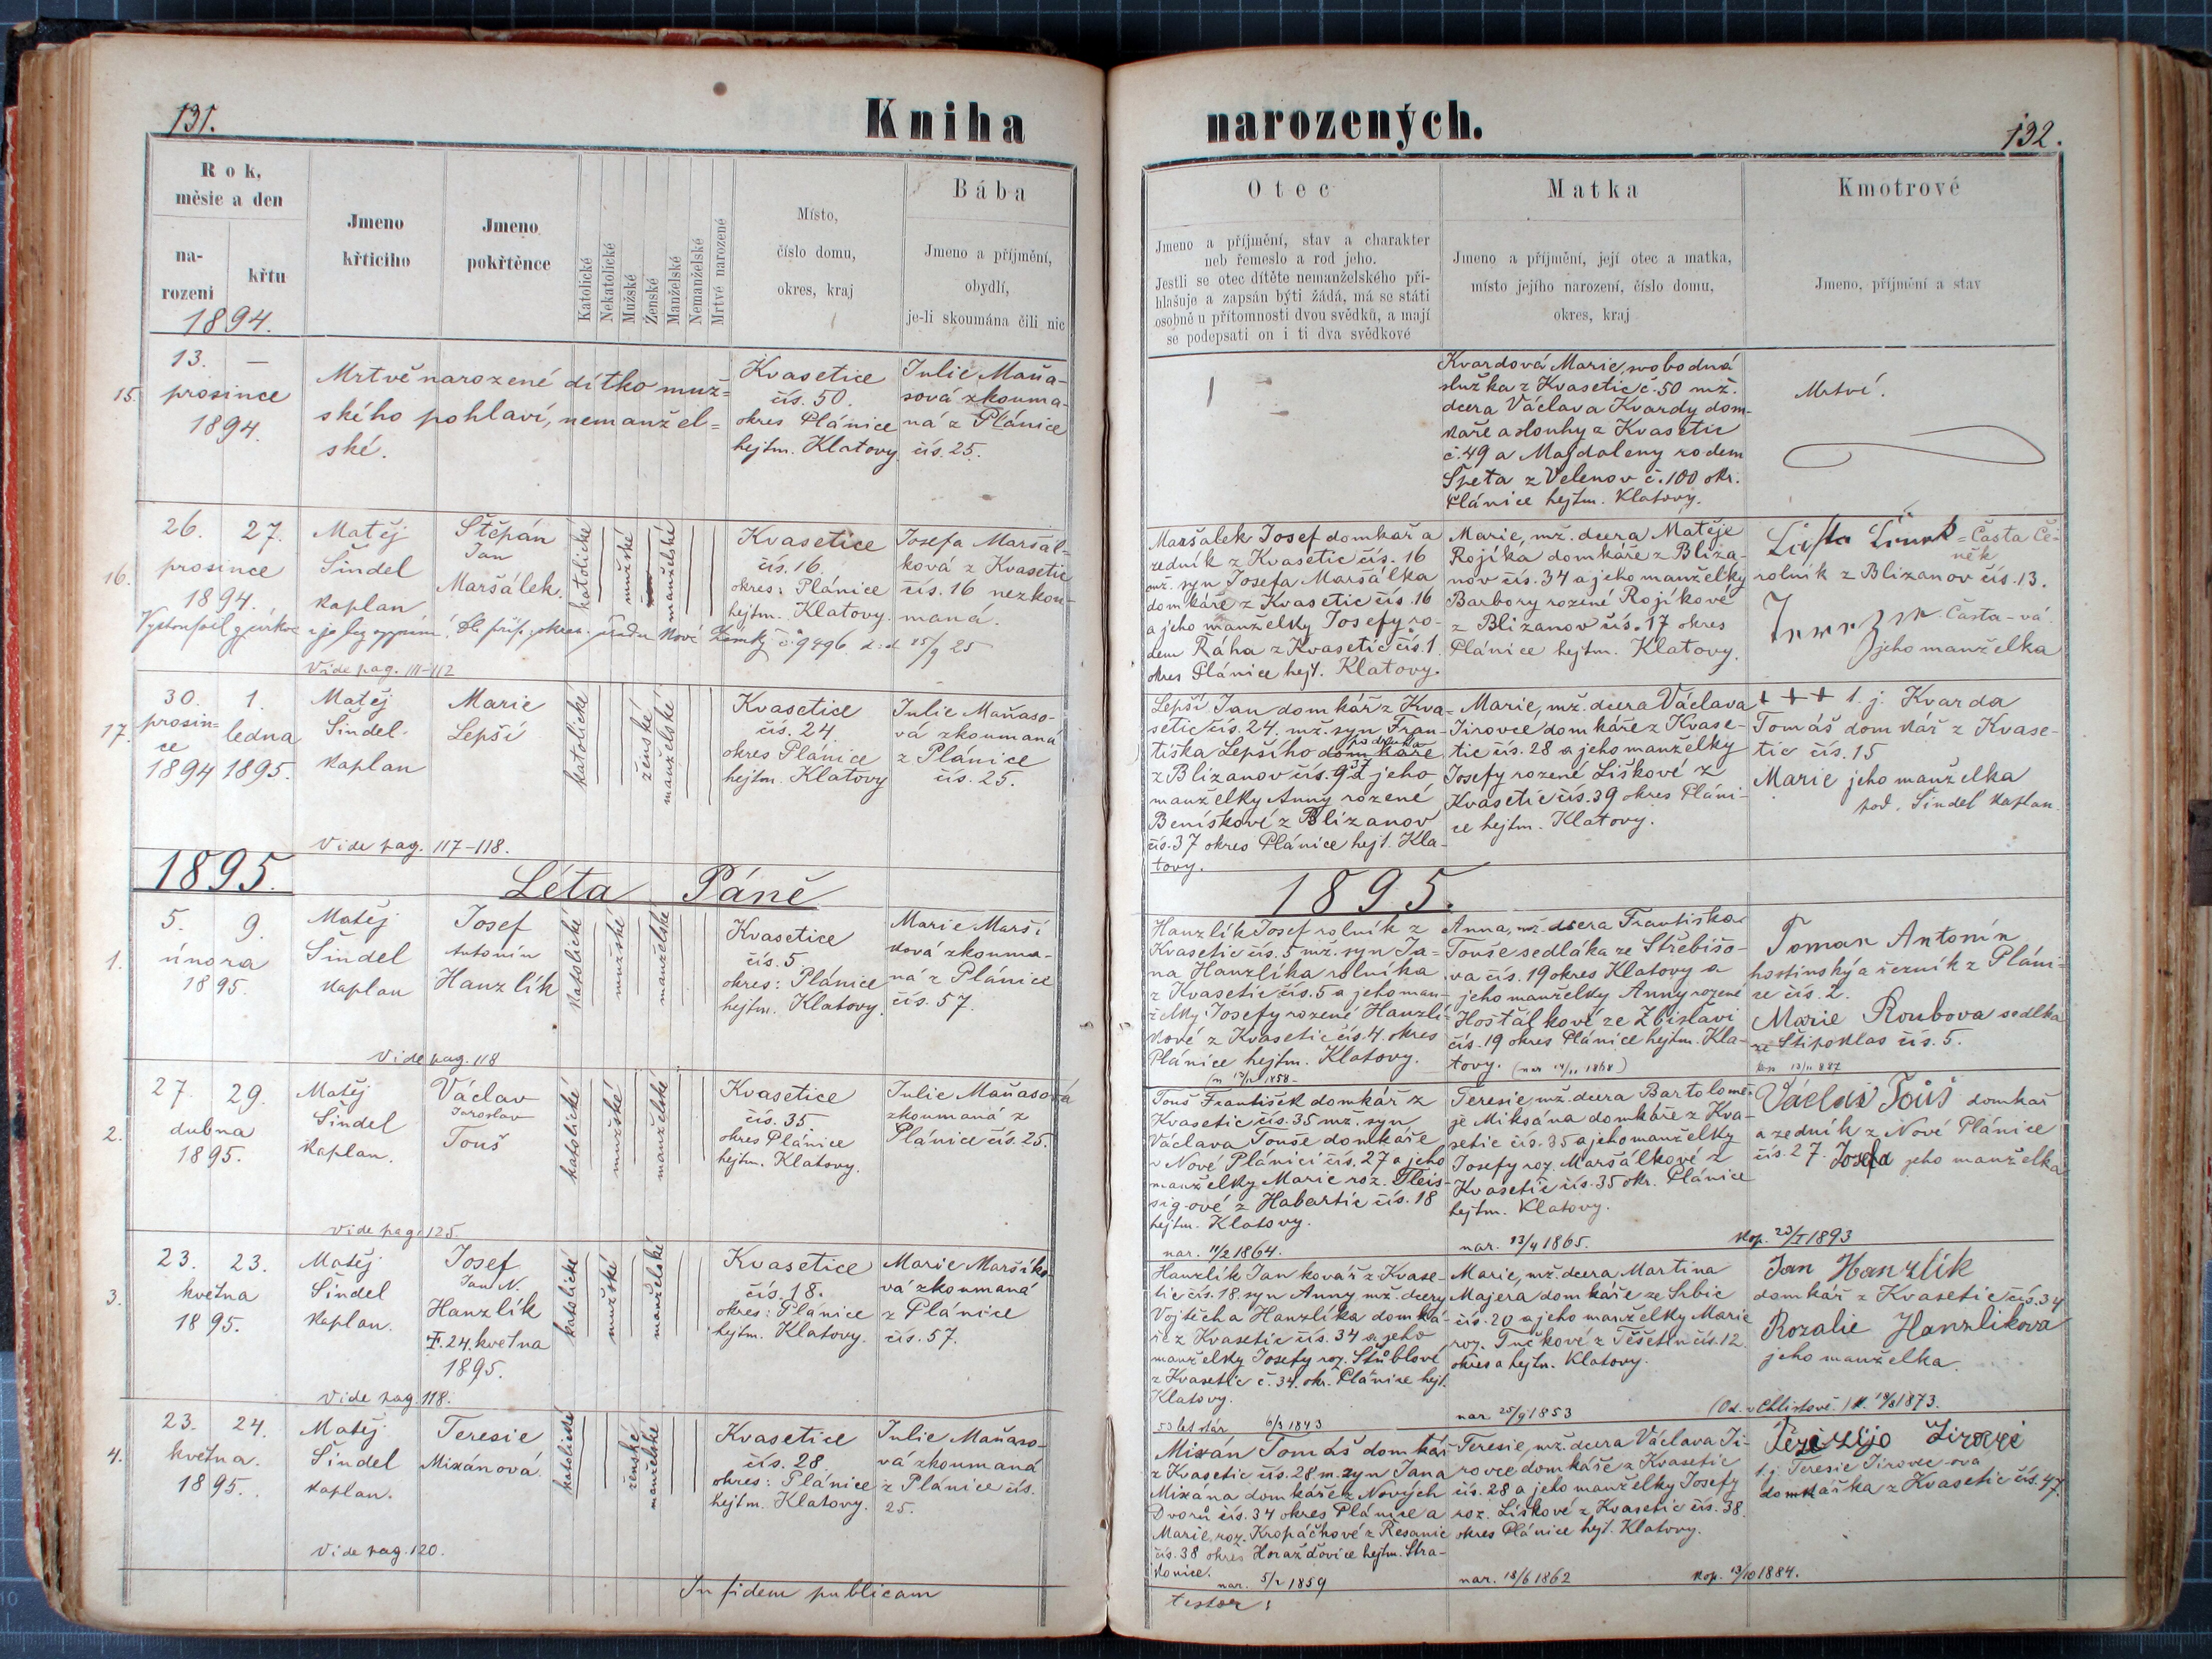 131.
Kniha
Rok,
měsíc a den
na-
rození
křtu
1894.
Jmeno
křtícího
Jmeno
pokřtěnce
Katolické
Nekatolické
Mužské
Ženské
Manželské
Nemanželské
Mrtvě narozené
Místo,
číslo domu,
okres, kraj
Bába
Jmeno a příjmění,
obydlí,
je-li skoumána čili nic
15.
13. —
prosince
1894.
Mrtvě narozené dítko muž=
ského pohlaví, nemanžel=
ské.
Kvasetice
čís. 50.
okres Plánice
hejtm. Klatovy
Julie Maňa-
sová zkouma-
ná z Plánice
čís. 25.
16.
26. 27.
prosince
1894.
Matěj
Šindel
kaplan
Štěpán
Jan
Maršálek.
katolické
mužské
manželské
Kvasetice
čís. 16.
okres: Plánice
hejtm. Klatovy.
Josefa Maršál-
ková z Kvasetic
čís. 16 nezkou-
maná.
Vystoupil z církve a je bez vyznání. Dle příp. okres. úřadu Nové Zámky č. 9496 d:d 25/9 25
Vide pag. 111-112
17.
30. 1.
prosin=
ce
ledna
1894 1895.
Matěj
Šindel.
kaplan
Marie
Lepší
katolické
ženské
manželské
Kvasetice
čís. 24.
okres Plánice
hejtm. Klatovy
Julie Maňaso-
vá zkoumaná
z Plánice
čís. 25.
Vide pag. 117-118.
1895.
Léta Páně
1.
5. 9.
února
1895.
Matěj
Šindel
kaplan
Josef
Antonín
Hanzlík
katolické
mužské
manželské
Kvasetice
čís. 5.
okres: Plánice
hejtm. Klatovy.
Marie Marší
ková zkouma-
ná z Plánice
čís. 57.
Vide pag. 118
2.
27. 29.
dubna
1895.
Matěj
Šindel
kaplan.
Václav
Jaroslav
Touš
katolické
mužské
manželské
Kvasetice
čís. 35.
okres Plánice
hejtm. Klatovy.
Julie Maňasová
zkoumaná z
Plánice čís. 25.
Vide pag. 125.
3.
23. 23.
května
1895.
Matěj
Šindel
kaplan.
Josef
Jan N.
Hanzlík
†. 24. května
1895.
katolické
mužské
manželské
Kvasetice
čís. 18.
okres: Plánice
hejtm. Klatovy.
Marie Maršíko-
vá zkoumaná
z Plánice
čís. 57.
Vide pag. 118.
4.
23. 24.
května.
1895.
Matěj
Šindel
kaplan.
Teresie
Mixánová.
katolické
ženské
manželské
Kvasetice
čís. 28.
okres: Plánice
hejtm. Klatovy.
Julie Maňaso-
vá zkoumaná
z Plánice čís.
25.
Vide pag. 120.
In fidem publicam
narozených.
132.
Otec
Jmeno a příjmění, stav a charakter
neb řemeslo a rod jeho.
Jestli se otec dítěte nemanželského při-
hlašuje a zapsán býti žádá, má se státi
osobně u přítomnosti dvou svědků, a mají
se podepsati on i ti dva svědkové
Matka
Jmeno a příjmění, její otec a matka,
místo jejího narození, číslo domu,
okres, kraj
Kmotrové
Jmeno, příjmění a stav
Kvardová Marie, svobodná
služka z Kvasetic č. 50 mž.
dcera Václava Kvardy dom-
káře a slouhy z Kvasetic
č. 49 a Magdaleny rodem
Špeta z Velenov č. 100 okr.
Plánice hejtm. Klatovy.
Mrtvé.
Maršálek Josef domkář a
zedník z Kvasetic čís. 16
mž. syn Josefa Maršálka
domkáře z Kvasetic čís. 16
a jeho manželky Josefy ro-
dem Řáha z Kvasetic čís. 1.
okres Plánice hejt. Klatovy.
Marie, mž. dcera Matěje
Rojíka domkáře z Bliza-
nov čís. 34 a jeho manželky
Barbory rozené Rojíkové
z Blizanov čís. 17 okres
Plánice hejtm. Klatovy.
= Časta Če-
něk
rolník z Blizanov čís. 13.
Časta-vá
jeho manželka
Lepší Jan domkář z Kva-
setic čís. 24. mž. syn Fran-
tiška Lepšího domkáře podruha
z Blizanov čís. 92 37 jeho
manželky Anny rozené
Beníškové z Blizanov
čís. 37 okres Plánice hejt. Kla-
tovy.
Marie, mž. dcera Václava
Jirovce domkáře z Kvase-
tic čís. 28 a jeho manželky
Josefy rozené Liškové z
Kvasetic čís. 39 okres Pláni-
ce hejtm. Klatovy.
+ + + t. j. Kvarda
Tomáš domkář z Kvase-
tic čís. 15
Marie jeho manželka
pod. Šindel kaplan.
1895.
Hanzlík Josef rolník z
Kvasetic čís. 5 mž. syn Ja-
na Hanzlíka rolníka
z Kvasetic čís. 5 a jeho man-
želky Josefy rozené Hanzlí-
kové z Kvasetic čís. 4. okres
Plánice hejtm. Klatovy.
Anna, mž. dcera Františka
Touše sedláka ze Střebišo-
va čís. 19 okres Klatovy a
jeho manželky Anny rozené
Hošťálkové ze Zbislavi
čís. 19 okres Plánice hejtm. Kla-
tovy.
Toman Antonín
hostinský a řezník z Pláni-
ce čís. 2.
Marie Roubova sedlka
ze Štipoklas čís. 5.
Touš František domkář z
Kvasetic čís. 35 mž. syn
Václava Touše domkáře
v Nové Plánici čís. 27 a jeho
manželky Marie roz. Fleis-
sig-ové z Habartic čís. 18
hejtm. Klatovy.
nar. 11/2 1864.
Teresie mž. dcera Bartolomě-
je Miksána domkáře z Kva-
setic čís. 35 a jeho manželky
Josefy roz. Maršálkové z
Kvasetic čís. 35 okr. Plánice
hejtm. Klatovy.
nar. 23/4 1865.
Václav Touš domkář
a zedník z Nové Plánice
čís. 27. Josefa jeho manželka
kop. 23/I 1893
Hanzlík Jan kovář z Kvase-
tic čís. 18. syn Anny mž. dcery
Vojtěcha Hanzlíka domká-
ře z Kvasetic čís. 34 a jeho
manželky Josefy roz. Štůblové
z Kvasetic č. 34. okr. Plánice hejt.
Klatovy.
53 let stár 6/3 1843
Marie, mž. dcera Martina
Majera domkáře ze Srbic
čís. 20 a jeho manželky Marie
roz. Tučkové z Těšetin čís. 12
okres a hejtm. Klatovy.
nar. 25/9 1853
Jan Hanzlík
domkář z Kvasetic čís. 34
Rozalie Hanzlikova
jeho manželka.
Mixán Tomáš domkář
z Kvasetic čís. 28 m. syn Jana
Mixána domkáře z Nových
Dvorů čís. 34 okres Plánice a
Marie, roz. Kropáčkové z Řesanic
čís. 38 okres Horažďovice hejtm. Stra-
konice.
nar. 5/2 1859
Teresie, mž. dcera Václava Ji-
rovce domkáře z Kvasetic
čís. 28 a jeho manželky Josefy
roz. Liškové z Kvasetic čís. 38.
okres Plánice hejt. Klatovy.
nar. 18/6 1862
t. j. Teresie Jirovec-ova
domkařka z Kvasetic čís. 47.
kop. 13/10 1884.
testor: